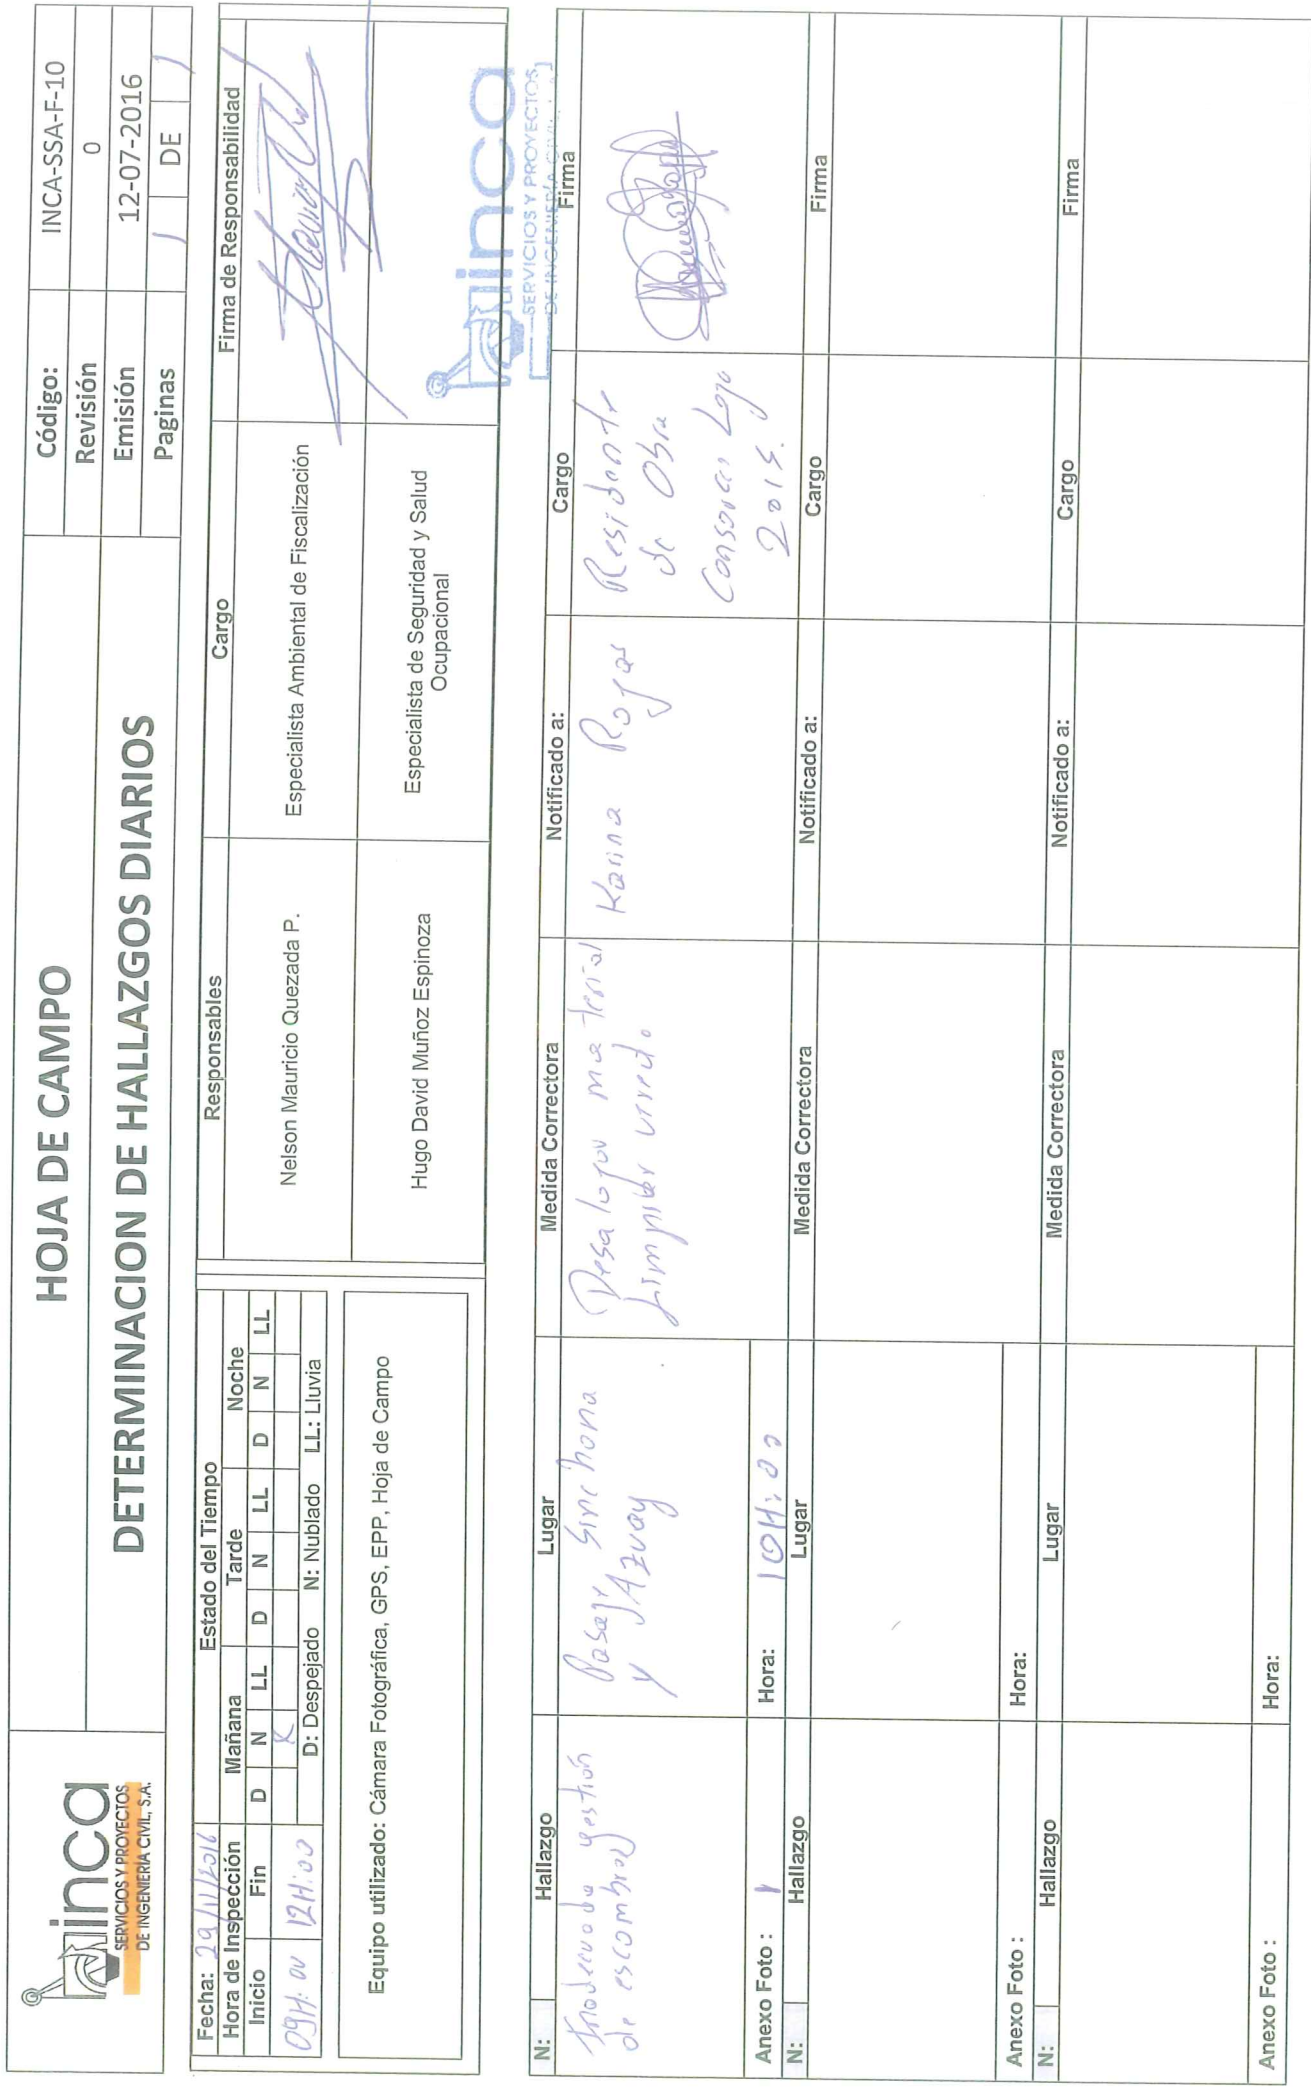 inca
SERVICIOS Y PROYECTOS
DE INGENIERÍA CIVIL, S.A.
HOJA DE CAMPO
DETERMINACION DE HALLAZGOS DIARIOS
Código: INCA-SSA-F-10
Revisión 0
Emisión 12-07-2016
Paginas 1 DE 1
Fecha: 29/11/2016 Estado del Tiempo
Hora de Inspección Mañana Tarde Noche
Inicio Fin D N LL D N LL D N LL
09H:00 12H:00 X
D: Despejado N: Nublado LL: Lluvia
Equipo utilizado: Cámara Fotográfica, GPS, EPP, Hoja de Campo
Responsables Cargo Firma de Responsabilidad
Nelson Mauricio Quezada P. Especialista Ambiental de Fiscalización
Hugo David Muñoz Espinoza Especialista de Seguridad y Salud
Ocupacional
inca
SERVICIOS Y PROYECTOS
DE INGENIERÍA CIVIL
N: Hallazgo Lugar Medida Correctora Notificado a: Cargo Firma
Inadecuada gestión
de escombros
Pasaje Sinchona
y Azuay
Desalojar material
Limpiar
Karina Rojas
Residente
de Obra
Consorcio Loja
2015.
Anexo Foto: 1 Hora: 10H:00
N: Hallazgo Lugar Medida Correctora Notificado a: Cargo Firma
Anexo Foto : Hora:
N: Hallazgo Lugar Medida Correctora Notificado a: Cargo Firma
Anexo Foto : Hora: